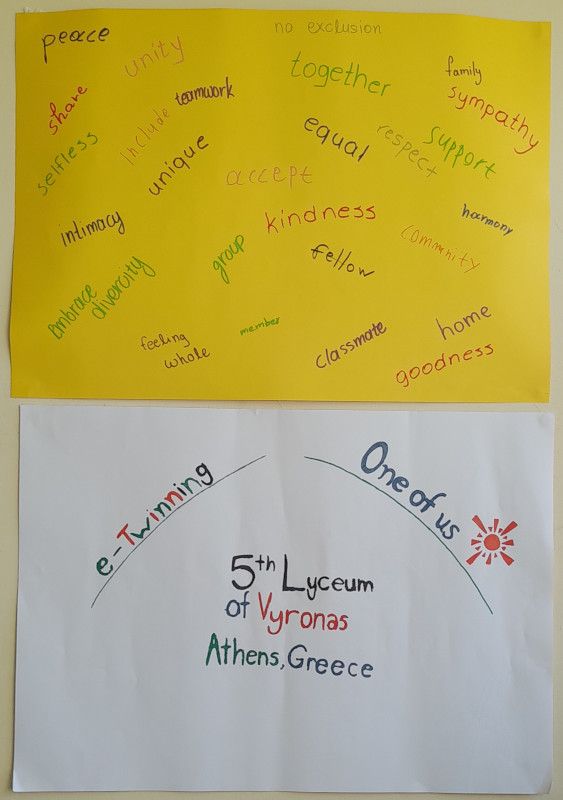 peace
unity
no exclusion
together
family
sympathy
share
teamwork
include
selfless
unique
equal
respect
support
accept
intimacy
kindness
harmony
community
group
fellow
embrace
divercity
feeling
whole
member
classmate
home
goodness
e-Twinning
One of us
5th Lyceum
of Vyronas
Athens, Greece